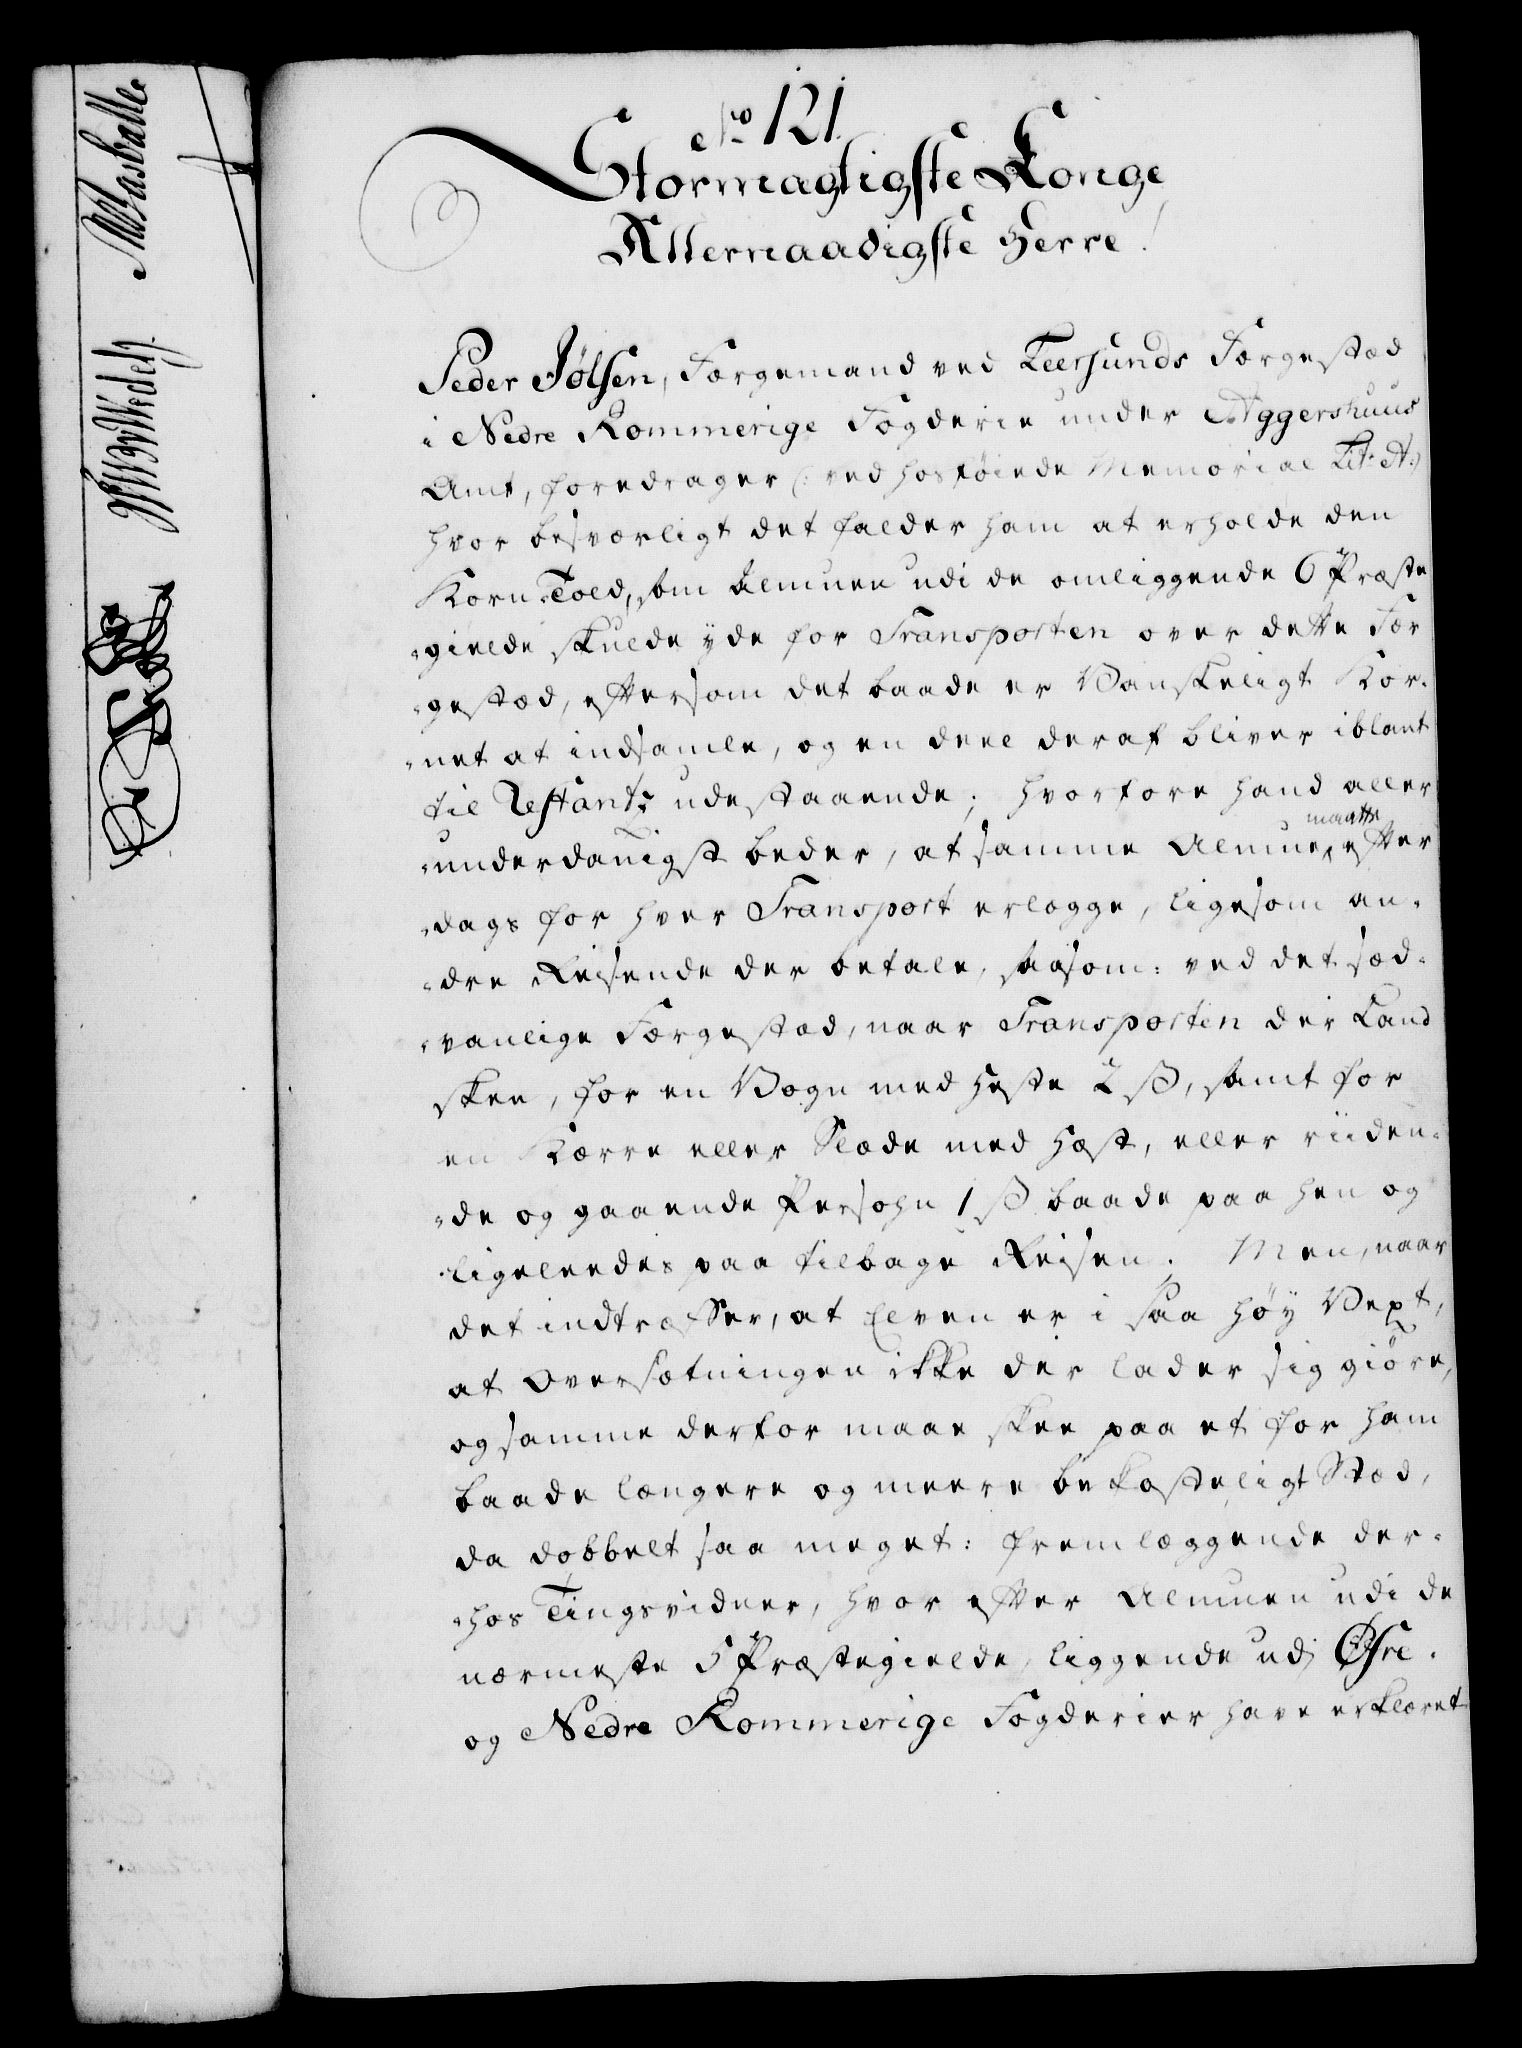 No 121.
Stormægtigste Konge
Allernaadigste Herre!
Peder Jølsen, Færgemand ved Leersunds Færgestæd
i Nedre Rommerige Fogderie under Aggershuus
Amt, foredrager (: ved hosføiede Memorial Lit: A:)
hvor besværligt det falder ham at erholde den
Korn-Told, som Almuen udi de omliggende 6 Præste
-gielde skulde yde for Transporten over dette Fær
-gestæd, eftersom det baade er Vanskeligt Kor-
-net at indsamle, og en deel deraf bliver iblant
til Restantz udestaaende; hvorfore hand aller
-underdanigst beder, at samme Almue maatte efter
-dags for hver Transport erlægge, ligesom an-
-dre Reisende der betale, saasom: ved det sæd-
-vanlige Færgestæd, naar Transporten der kand
skee, for en Vogn med Heste 2 ß, samt for
en Kærre eller Slæde med Hæst, eller riiden-
-de og gaaende Persohn 1 ß baade paa hen og
ligeleedes paa tilbage Reisen. Men, naar
det indtræffer, at Elven er i saa høy Vext,
at Oversætningen ikke der lader sig giøre,
og samme derfor maae skee paa et for ham
baade længere og meere bekosteligt Stæd,
da dobbelt saa meget: fremlæggende der-
-hos Tingsvidner, hvor efter Almuen udi de
nærmeste 5 Præstegielde, liggende udi Øfre-
og Nedre Rommerige Fogderier have erklæret